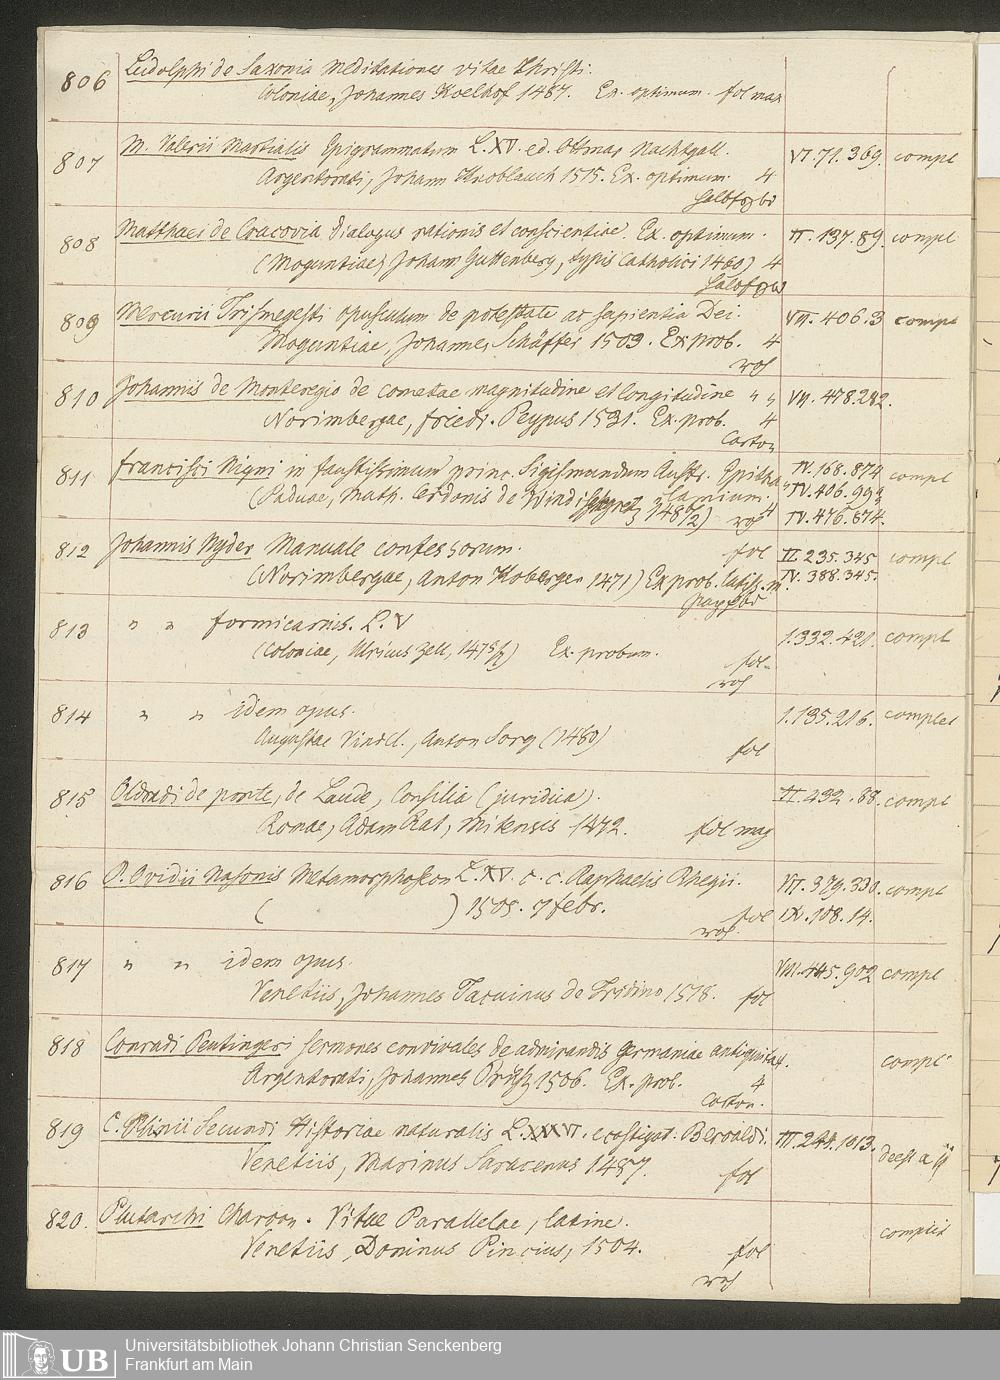 806 Ludolphi de Saxonia Meditationes vitae Christi.
Coloniae, Johannes Koelhof 1487. Ex. optimum. fol max
807 M. Valerii Martialis Epigrammatum L. XV. ed. Ottmar Nachtgall. VI. 71. 369. compl
Argentorati, Johann Knoblauch 1515. Ex. optimum. 4
halbfzbd
808 Matthaei de Cracovia Dialogus rationis et conscientiae. Ex. optimum. II. 137. 89. compl
(Moguntiae, Johann Guttenberg, typis Catholici 1460) 4
809 Mercurii Trismegisti opusculum de potestate ac sapientia Dei. VII. 406. 3 compl
Moguntiae, Johannes Schäffer 1503. Ex prob. 4
roh
810 Johannis de Monteregio de cometae magnitudine et longitudine " " VII. 478. 242.
Norimbergae, Fried. Peypus 1531. Ex. prob. 4
Carton
811 Francisci Nigri in faustissimum princ. Sigismundum Austr. Epitha IV. 168. 874 compl
(Paduae, Math. Cerdonis de Windischgretz 1482) lamium. 4 IV. 406.
roh IV. 476. 874.
812 Johannis Nyder Manuale confessorum. fol II. 235. 345 compl
(Norimbergae, Anton Koberger 1471) Ex prob. latiss. m. IV. 388. 345.
813 " " formicarius. L. V 1. 332. 421. compl
(Coloniae, Ulricus Zell, ) Ex. probum. fol.
roh
814 " " idem opus. 1. 135. 216. complet
Augustae Vindel., Anton Sorg (1480) fol
815 Oldradi de ponte, de Laude, Consilia (juridica). II. 432. 88. compl
Romae, Adam Rat, 1472. fol mag
816 P. Ovidii Nasonis Metamorphoseon L. XV. c. c. Raphaelis Rhegii. VII. 379. 330. compl
( ) 1505. 7 febr. fol IX. 108. 14.
roh.
817 " " idem opus. VIII. 445. 902 compl
Venetiis, Johannes Tacuinus de Tridino 1518. fol
818 Conradi Peutingeri sermones convivales de admirandis Germaniae antiquitat. compl
Argentorati, Johannes Priss 1506. Ex. prob. 4
Carton.
819 C. Plinii Secundi Historiae naturalis L. ecastigat. Beroaldi. III. 244. 1013.
Venetiis, Marinus Saracenus 1487. fol deest a
820. Plutarchi Chaeron. Vitae Parallelae, latine. complet
Venetiis, Doninus Pincius, 1504. fol
roh
UB
Universitätsbibliothek Johann Christian Senckenberg
Frankfurt am Main